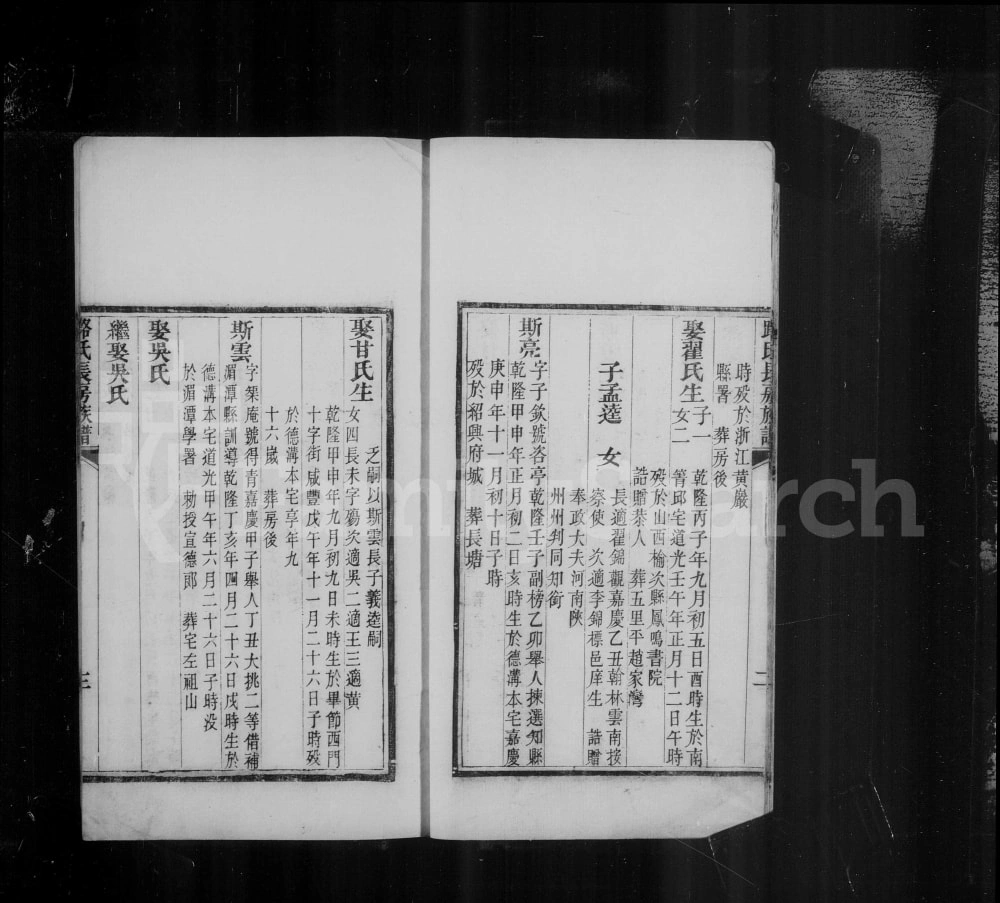 路氏長房族譜
二
時歿於浙江黄巖
縣署　葬房後
娶翟氏生子一
女二
乾隆丙子年九月初五日酉時生於南
箐邱宅道光壬午年正月十二日午時
歿於山西榆次縣鳳鳴書院
誥贈恭人　葬五里平趙家灣
子孟逵　女
長適翟錦觀嘉慶乙丑翰林雲南按
察使　次適李錦標邑庠生　誥贈
奉政大夫河南陝
州州判同知銜
斯亮
字子欽號峇亭乾隆壬子副榜乙卯舉人揀選知縣
乾隆甲申年正月初二日亥時生於德溝本宅嘉慶
庚申年十一月初十日子時
歿於紹興府城　葬長塘
娶甘氏生
乏嗣以斯雲長子義逵嗣
女四長未字殤次適吳二適王三適黄
乾隆甲申年九月初九日未時生於畢節西門
十字街咸豐戊午年十一月二十六日子時歿
於德溝本宅享年九
十六嵗　葬房後
斯雲
字榘庵號得青嘉慶甲子舉人丁丑大挑二等借補
湄潭縣訓導乾隆丁亥年四月二十六日戌時生於
德溝本宅道光甲午年六月二十六日子時没
於湄潭學署　勑授宣德郎　葬宅左祖山
娶吳氏
繼娶吳氏
路氏長房族譜
三
FamilySearch